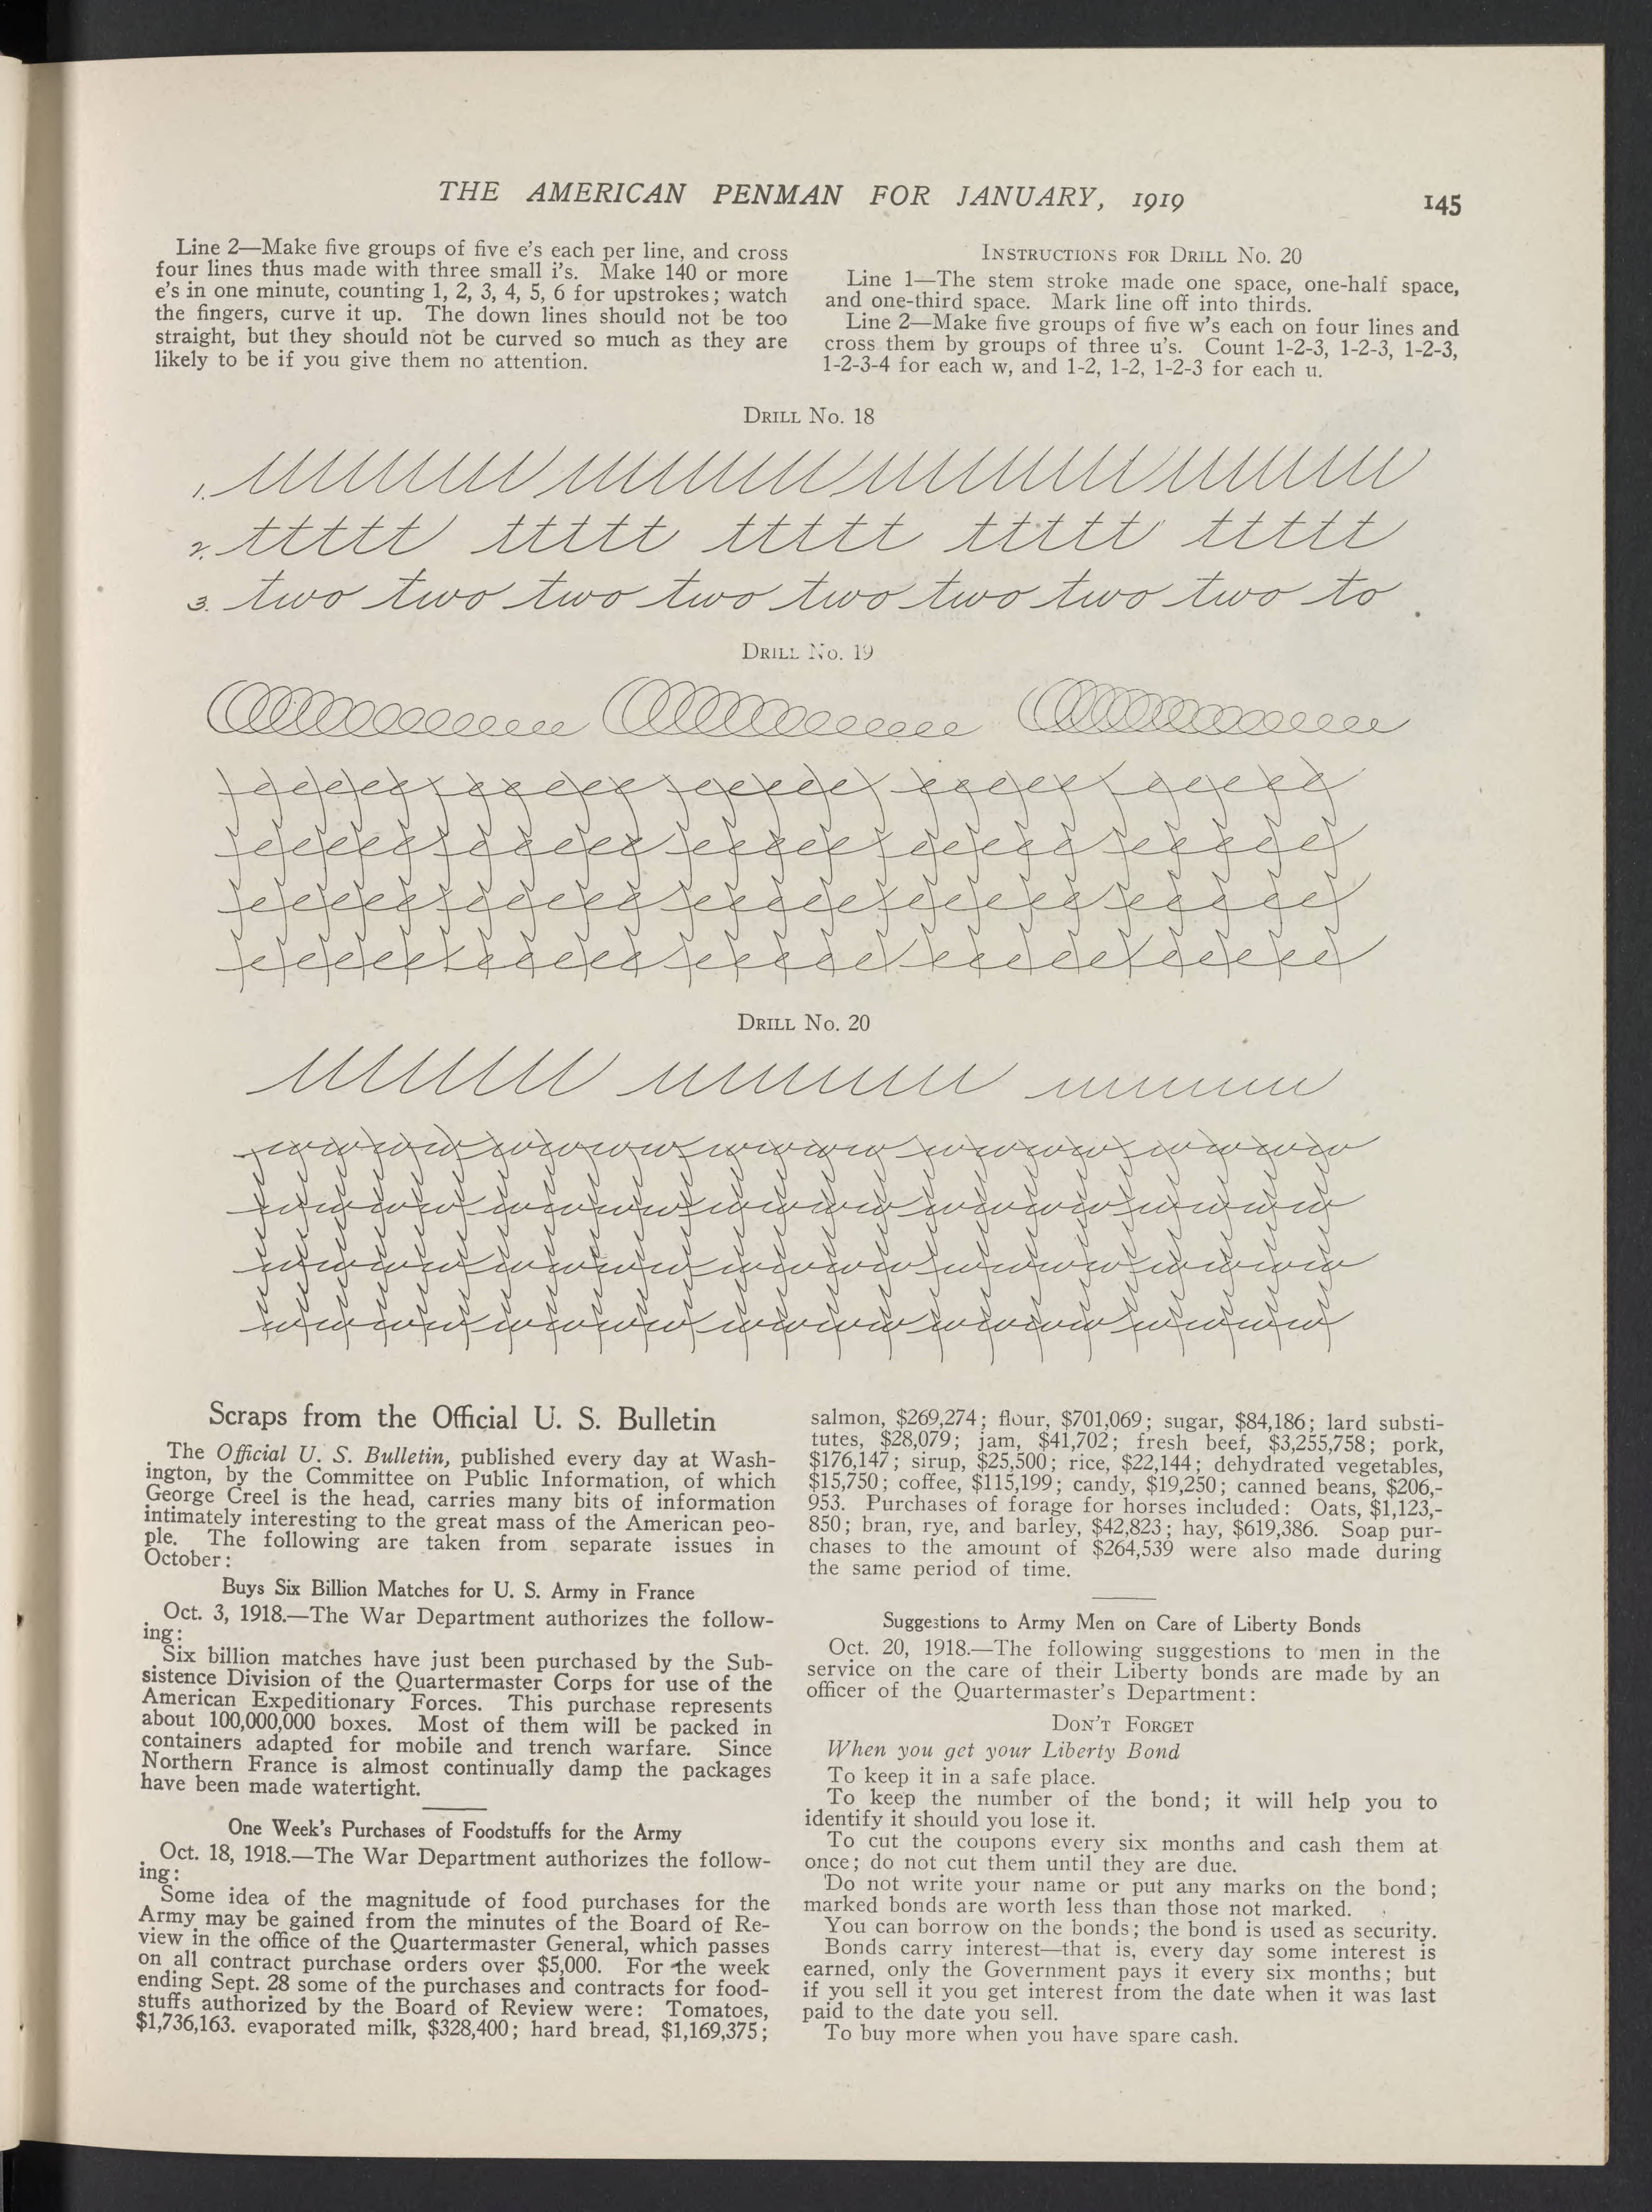 THE AMERICAN PENMAN FOR JANUARY, 1919
145
Line 2—Make five groups of five e's each per line, and cross
four lines thus made with three small i's. Make 140 or more
e's in one minute, counting 1, 2, 3, 4, 5, 6 for upstrokes; watch
the fingers, curve it up. The down lines should not be too
straight, but they should not be curved so much as they are
likely to be if you give them no attention.
INSTRUCTIONS FOR DRILL NO. 20
Line 1—The stem stroke made one space, one-half space,
and one-third space. Mark line off into thirds.
Line 2—Make five groups of five w's each on four lines and
cross them by groups of three u's. Count 1-2-3, 1-2-3, 1-2-3,
1-2-3-4 for each w, and 1-2, 1-2, 1-2-3 for each u.
DRILL NO. 18
1.
2. ttttt ttttt ttttt ttttt ttttt
3. two two two two two two two two to
DRILL NO. 19
eeeee eeeee eeeee eeeee eeeee
eeeee eeeee eeeee eeeee eeeee
eeeee eeeee eeeee eeeee eeeee
eeeee eeeee eeeee eeeee eeeee
DRILL NO. 20
wwwww wwwww wwwww wwwww wwwww
wwwww wwwww wwwww wwwww wwwww
wwwww wwwww wwwww wwwww wwwww
wwwww wwwww wwwww wwwww wwwww
Scraps from the Official U. S. Bulletin
The Official U. S. Bulletin, published every day at Wash-
ington, by the Committee on Public Information, of which
George Creel is the head, carries many bits of information
intimately interesting to the great mass of the American peo-
ple. The following are taken from separate issues in
October:
Buys Six Billion Matches for U. S. Army in France
Oct. 3, 1918.—The War Department authorizes the follow-
ing:
Six billion matches have just been purchased by the Sub-
sistence Division of the Quartermaster Corps for use of the
American Expeditionary Forces. This purchase represents
about 100,000,000 boxes. Most of them will be packed in
containers adapted for mobile and trench warfare. Since
Northern France is almost continually damp the packages
have been made watertight.
One Week's Purchases of Foodstuffs for the Army
Oct. 18, 1918.—The War Department authorizes the follow-
ing:
Some idea of the magnitude of food purchases for the
Army may be gained from the minutes of the Board of Re-
view in the office of the Quartermaster General, which passes
on all contract purchase orders over $5,000. For the week
ending Sept. 28 some of the purchases and contracts for food-
stuffs authorized by the Board of Review were: Tomatoes,
$1,736,163. evaporated milk, $328,400; hard bread, $1,169,375;
salmon, $269,274; flour, $701,069; sugar, $84,186; lard substi-
tutes, $28,079; jam, $41,702; fresh beef, $3,255,758; pork,
$176,147; sirup, $25,500; rice, $22,144; dehydrated vegetables,
$15,750; coffee, $115,199; candy, $19,250; canned beans, $206,-
953. Purchases of forage for horses included: Oats, $1,123,-
850; bran, rye, and barley, $42,823; hay, $619,386. Soap pur-
chases to the amount of $264,539 were also made during
the same period of time.
Suggestions to Army Men on Care of Liberty Bonds
Oct. 20, 1918.—The following suggestions to men in the
service on the care of their Liberty bonds are made by an
officer of the Quartermaster's Department:
DON'T FORGET
When you get your Liberty Bond
To keep it in a safe place.
To keep the number of the bond; it will help you to
identify it should you lose it.
To cut the coupons every six months and cash them at
once; do not cut them until they are due.
Do not write your name or put any marks on the bond;
marked bonds are worth less than those not marked.
You can borrow on the bonds; the bond is used as security.
Bonds carry interest—that is, every day some interest is
earned, only the Government pays it every six months; but
if you sell it you get interest from the date when it was last
paid to the date you sell.
To buy more when you have spare cash.